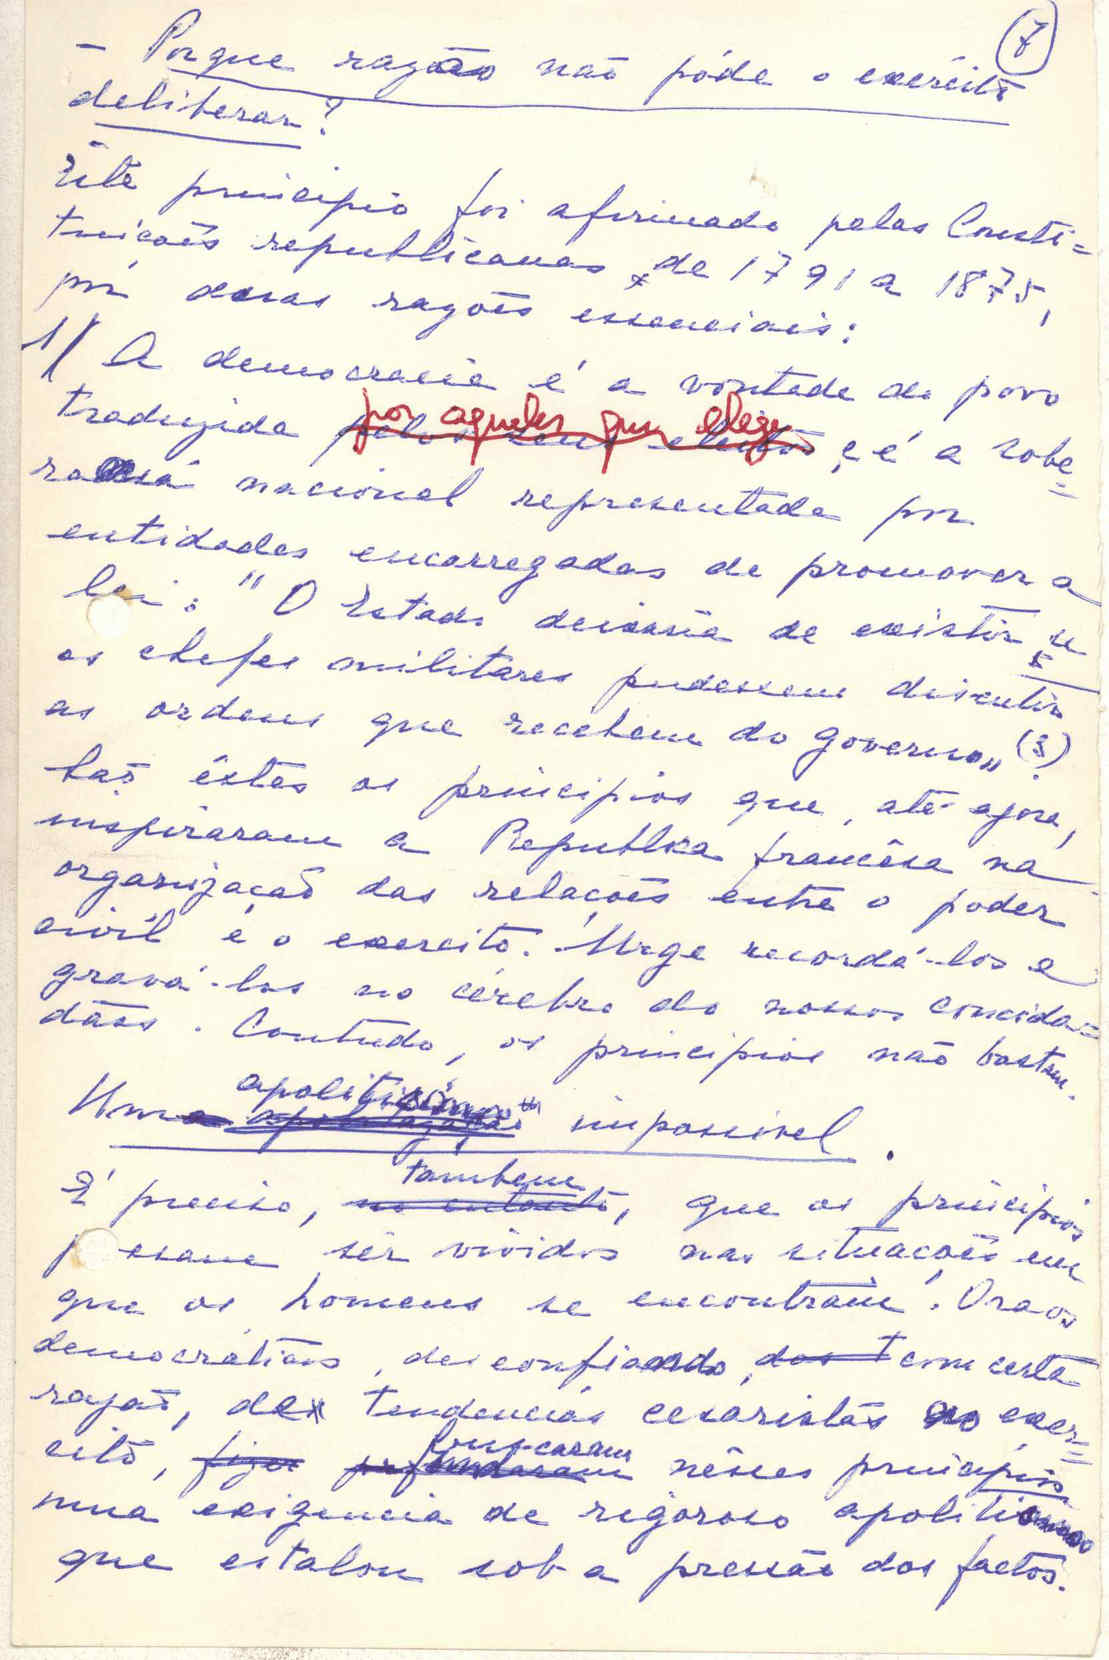 7
- Porque razão não póde o exército
deliberar?
Êste principio foi afirmado pelas Consti=
tuições republicanas de 1791 a 1875,
por duas razões essenciais:
1/ A democracia é a vontade do povo
traduzida por aqueles que elege, e é a sobe=
rania nacional representada por
entidades encarregadas de promover a
lei: "O Estado deixaria de existir se
os chefes militares pudessem discutir
as ordens que recebem do governo" (3)
São êstes os principios que, até agora,
inspiraram a Republica francêsa na
organização das relações entre o poder
civil e o exercito. Urge recordá-los e
gravá-los no cérebro do nossos concida=
dãos. Contudo, os principios não bastam.
Um apolitisimo impossivel.
É preciso, tambem, que os principios
possam sêr vividos nas situações em
que os homens se encontram. Ora os
democráticos, desconfiando, com certa
razão, das tendencias cesaristas no exer=
cito, buscaram nêsses principios
uma exigencia de rigoroso apolitismo
que estalou sob a pressão dos factos.